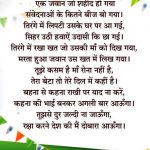 एक जवान जो शहीद हो गया
संवेदनाओं के कितने बीज बो गया।
तिरंगे में लिपटी उसके घर पर आ गई,
सिहर उठी हवाएँ उदासी छा गई।
तिरंगे में रखा खत जो उसकी माँ को दिख गया,
मरता हुआ जवान उस खत में लिख गया।
तुझे कसम है माँ रोना नहीं है,
तेरा बेटा तो तेरे दिल में कहीं है।
बहना से कहना राखी पर याद ना करें,
कहना की भाई बनकर अगली बार आऊँगा।
तुझसे दूर जल्दी ना जाऊँगा,
रक्षा करने देश की मैं दोबारा आऊँगा।